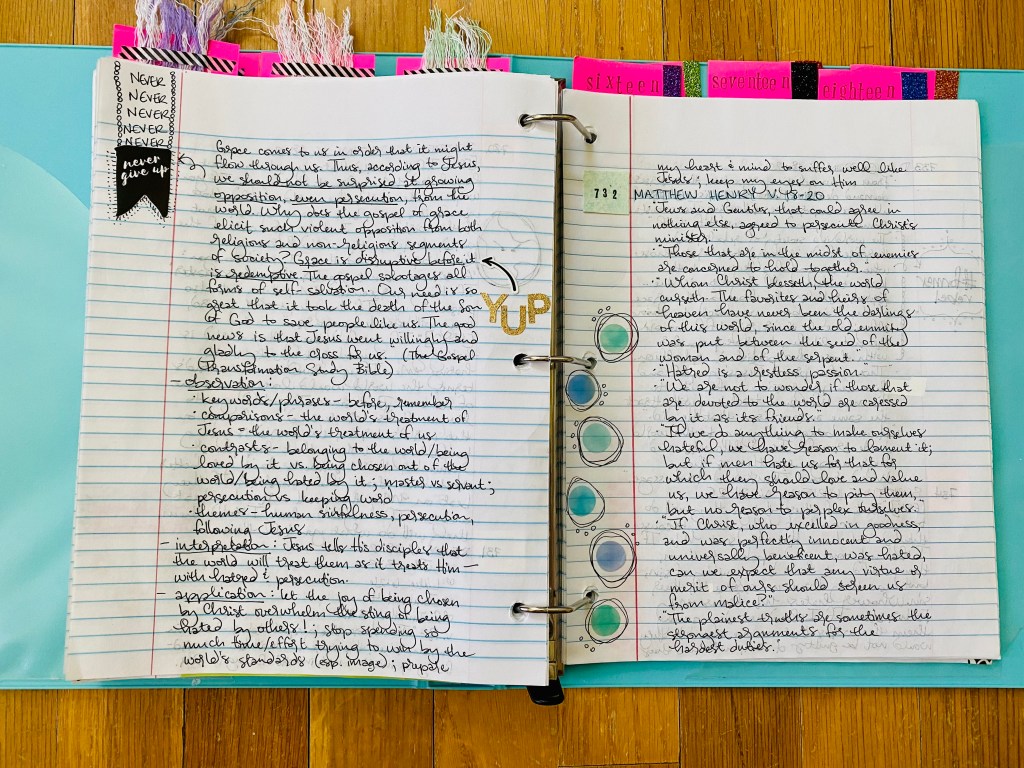 NEVER
NEVER
NEVER
NEVER
NEVER
never
give up
Grace comes to us in order that it might
flow through us. Thus, according to Jesus,
we should not be surprised at growing
opposition, even persecution, from the
world. Why does the gospel of grace
elicit such violent opposition from both
religious and non-religious segments
of society? Grace is disruptive before it
is redemptive. The gospel sabotages all
forms of self-salvation. Our need is so
great that it took the death of the Son
of God to save people like us. The good
news is that Jesus went willingly and
gladly to the cross for us." (The Gospel
Transformation Study Bible)
YUP
- observation:
· key words/phrases - before, remember
· comparisons - the world's treatment of
Jesus = the world's treatment of us
· contrasts - belonging to the world/being
loved by it vs. being chosen out of the
world/being hated by it; master vs servant;
persecution vs keeping word
· themes - human sinfulness, persecution,
following Jesus
- interpretation: Jesus tells His disciples that
the world will treat them as it treats Him -
with hatred & persecution
- application: let the joy of being chosen
by Christ overwhelm the sting of being
hated by others!; stop spending so
much time/effort trying to win by the
world's standards (esp. image); prepare
sixteen
seventeen
eighteen
my heart & mind to suffer well like
Jesus; keep my eyes on Him
732
MATTHEW HENRY V. 18-20
· "Jews and Gentiles, that could agree in
nothing else, agreed to persecute Christ's
minister."
· "Those that are in the midst of enemies
are concerned to hold together."
· "Whom Christ blesseth the world
curseth. The favorites and heirs of
heaven have never been the darlings
of this world, since the old enmity
was put between the seed of the
woman and of the serpent."
· "Hatred is a restless passion."
· "We are not to wonder if those that
are devoted to the world are caressed
by it as its friends."
· "If we do anything to make ourselves
hateful, we have reason to lament it;
but if men hate us for that for
which they should love and value
us, we have reason to pity them,
but no reason to perplex ourselves."
· "If Christ, who excelled in goodness,
and was perfectly innocent and
universally beneficent, was hated,
can we expect that any virtue or
merit of ours should screen us
from malice?"
· "The plainest truths are sometimes the
strongest arguments for the
hardest duties.